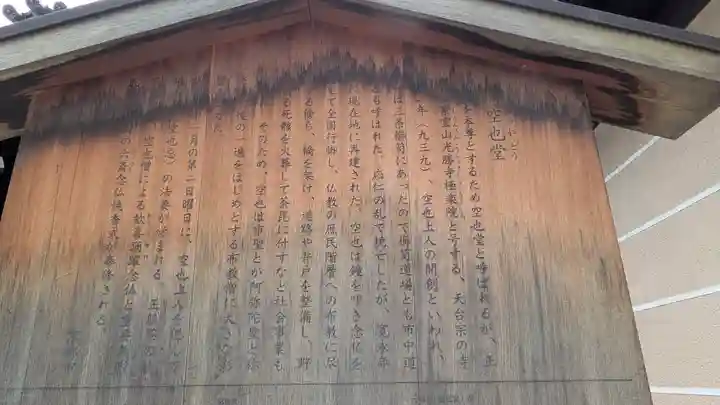 空也堂
を本尊とするため空也堂と呼ばれるが、正
紫雲山光勝寺極楽院と号する、天台宗の寺
年(九三九)、空也上人の開創といわれ、
は三条櫛笥にあったので櫛笥道場とも市中道
も呼ばれた。応仁の乱で焼亡したが、寛永年
現在地に再建された。空也は鐘を叩き念仏を
して全国行脚し、仏教の庶民階層への布教に尽
る傍ら、橋を架け、道路や井戸を整備し、野
る死骸を火葬して荼毘に付すなど社会事業も
そのため、空也は市聖とか阿弥陀聖と称
後の一遍をはじめとする布教僧に大きな影
た。
月の第二日曜日に、空也上人を偲んで
空也忌)の法要が営まれる。王服茶の
空也僧による歓喜踊躍念仏と重要
の六斎念仏焼香式が奉修される。